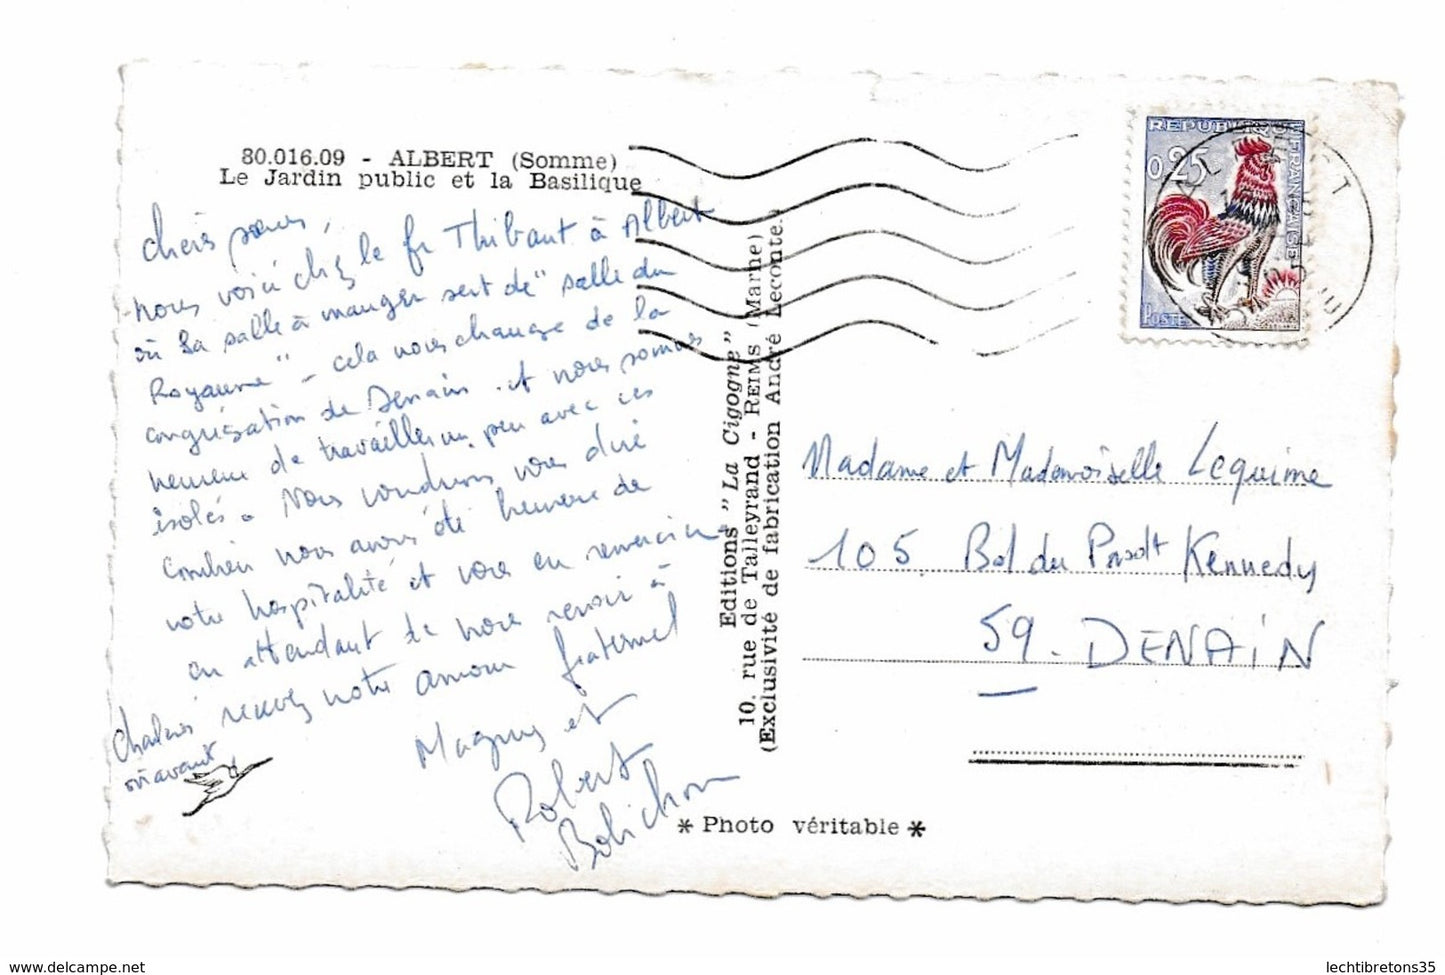 80.016.09 - ALBERT (Somme)
Le Jardin public et la Basilique
chères sœurs,
nous voici chez le fr Thibaut à Albert
où sa salle à manger sert de "salle du
Royaume" - cela nous change de la
congrégation de Denain et nous sommes
heureux de travailler un peu avec ces
isolés. Nous voudrions vous dire
combien nous avons été heureux de
votre hospitalité et vous en remercier
en attendant de vous revoir à
recevez notre amour fraternel
Magny et
Robert
Bobichon
Editions "La Cigogne"
10, rue de Talleyrand - REIMS (Marne)
(Exclusivité de fabrication André Leconte.)
REPUBLIQUE FRANÇAISE
0,25
POSTES
Madame et Mademoiselle Lequime
105. Bd du Prsdt Kennedy
59. DENAIN
* Photo véritable *
lechtibretons35
https://www.delcampe.net